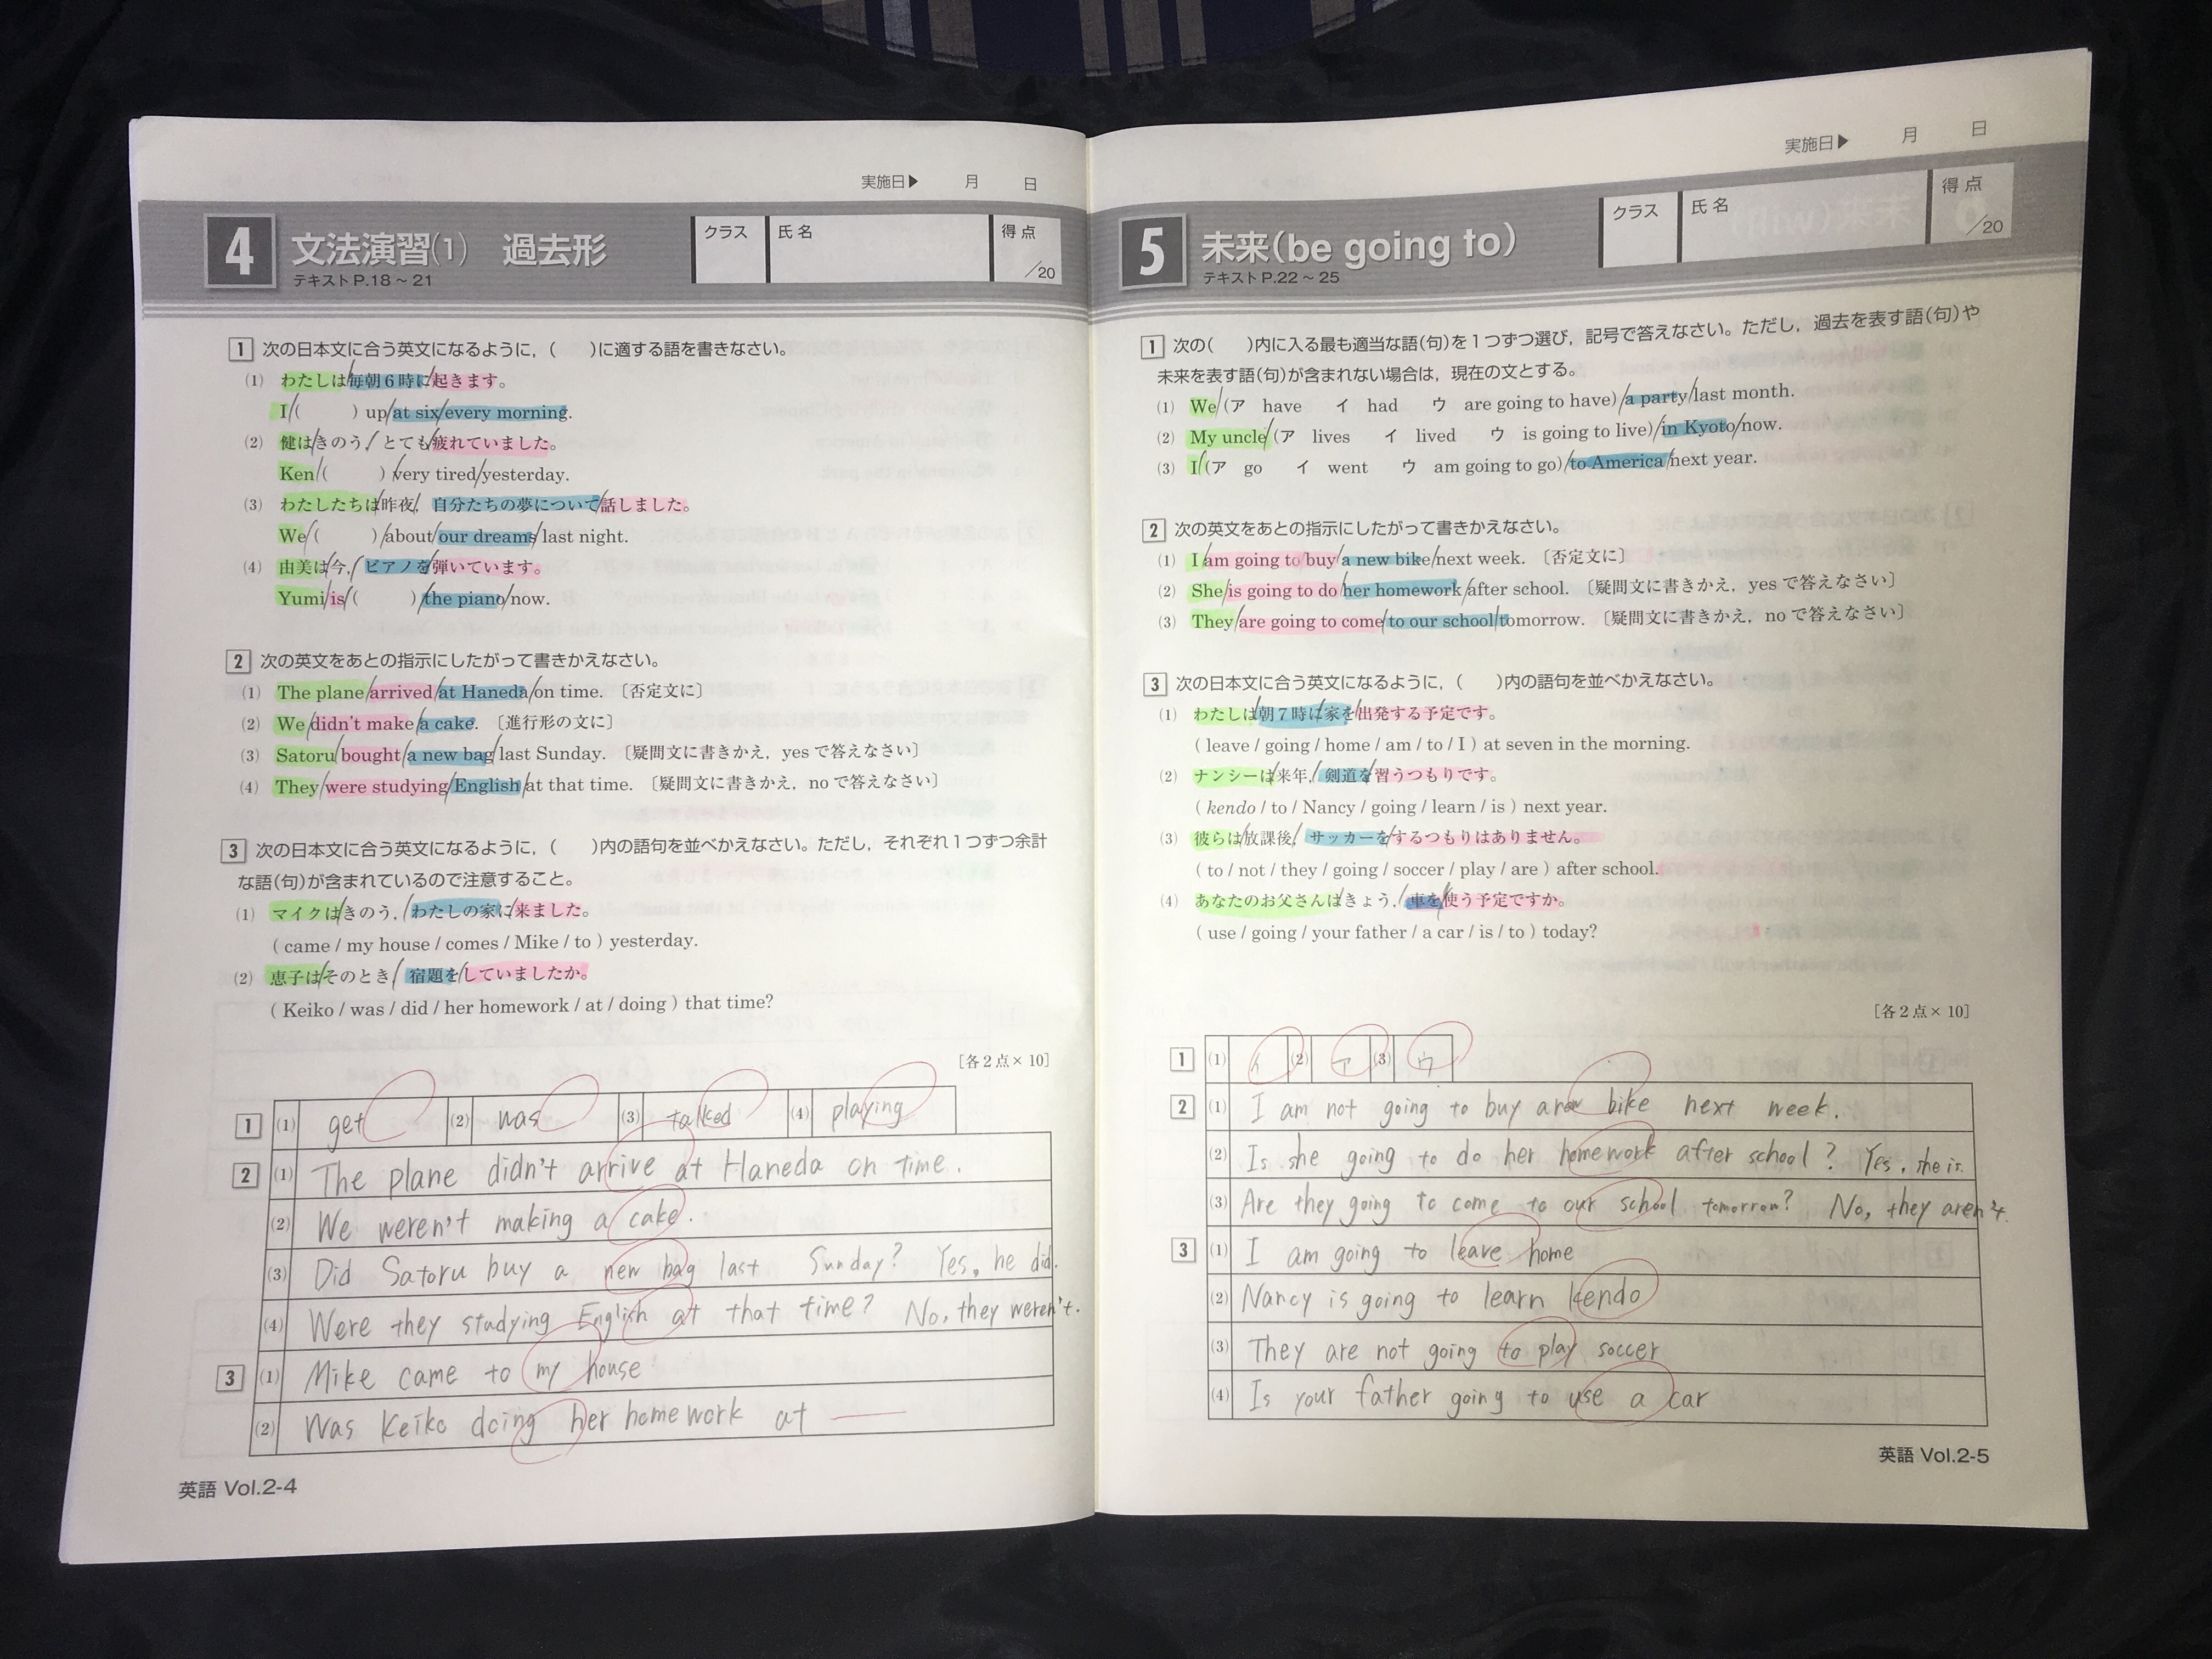 実施日▶ 月 日
4 文法演習(1) 過去形
テキストP.18~21
クラス 氏名 得点 /20
1 次の日本文に合う英文になるように,( )に適する語を書きなさい。
(1) わたしは毎朝6時に起きます。
I ( ) up at six every morning.
(2) 健はきのう,とても疲れていました。
Ken ( ) very tired yesterday.
(3) わたしたちは昨夜,自分たちの夢について話しました。
We ( ) about our dreams last night.
(4) 由美は今,ピアノを弾いています。
Yumi is ( ) the piano now.
2 次の英文をあとの指示にしたがって書きかえなさい。
(1) The plane arrived at Haneda on time. 〔否定文に〕
(2) We didn't make a cake. 〔進行形の文に〕
(3) Satoru bought a new bag last Sunday. 〔疑問文に書きかえ,yesで答えなさい〕
(4) They were studying English at that time. 〔疑問文に書きかえ,noで答えなさい〕
3 次の日本文に合う英文になるように,( )内の語句を並べかえなさい。ただし,それぞれ1つずつ余計
な語(句)が含まれているので注意すること。
(1) マイクはきのう,わたしの家に来ました。
( came / my house / comes / Mike / to ) yesterday.
(2) 恵子はそのとき,宿題をしていましたか。
( Keiko / was / did / her homework / at / doing ) that time?
[各2点×10]
1 (1) get (2) was (3) talked (4) playing
2 (1) The plane didn't arrive at Haneda on time.
(2) We weren't making a cake.
(3) Did Satoru buy a new bag last Sunday? Yes, he did.
(4) Were they studying English at that time? No, they weren't.
3 (1) Mike came to my house
(2) Was Keiko doing her homework at
英語 Vol.2-4
実施日▶ 月 日
5 未来(be going to)
テキストP.22~25
クラス 氏名 得点 /20
1 次の( )内に入る最も適当な語(句)を1つずつ選び,記号で答えなさい。ただし,過去を表す語(句)や
未来を表す語(句)が含まれない場合は,現在の文とする。
(1) We (ア have イ had ウ are going to have) a party last month.
(2) My uncle (ア lives イ lived ウ is going to live) in Kyoto now.
(3) I (ア go イ went ウ am going to go) to America next year.
2 次の英文をあとの指示にしたがって書きかえなさい。
(1) I am going to buy a new bike next week. 〔否定文に〕
(2) She is going to do her homework after school. 〔疑問文に書きかえ,yesで答えなさい〕
(3) They are going to come to our school tomorrow. 〔疑問文に書きかえ,noで答えなさい〕
3 次の日本文に合う英文になるように,( )内の語句を並べかえなさい。
(1) わたしは朝7時に家を出発する予定です。
( leave / going / home / am / to / I ) at seven in the morning.
(2) ナンシーは来年,剣道を習うつもりです。
( kendo / to / Nancy / going / learn / is ) next year.
(3) 彼らは放課後,サッカーをするつもりはありません。
( to / not / they / going / soccer / play / are ) after school.
(4) あなたのお父さんはきょう,車を使う予定ですか。
( use / going / your father / a car / is / to ) today?
[各2点×10]
1 (1) イ (2) ア (3) ウ
2 (1) I am not going to buy a new bike next week.
(2) Is she going to do her homework after school? Yes, she is.
(3) Are they going to come to our school tomorrow? No, they aren't.
3 (1) I am going to leave home
(2) Nancy is going to learn kendo
(3) They are not going to play soccer
(4) Is your father going to use a car
英語 Vol.2-5